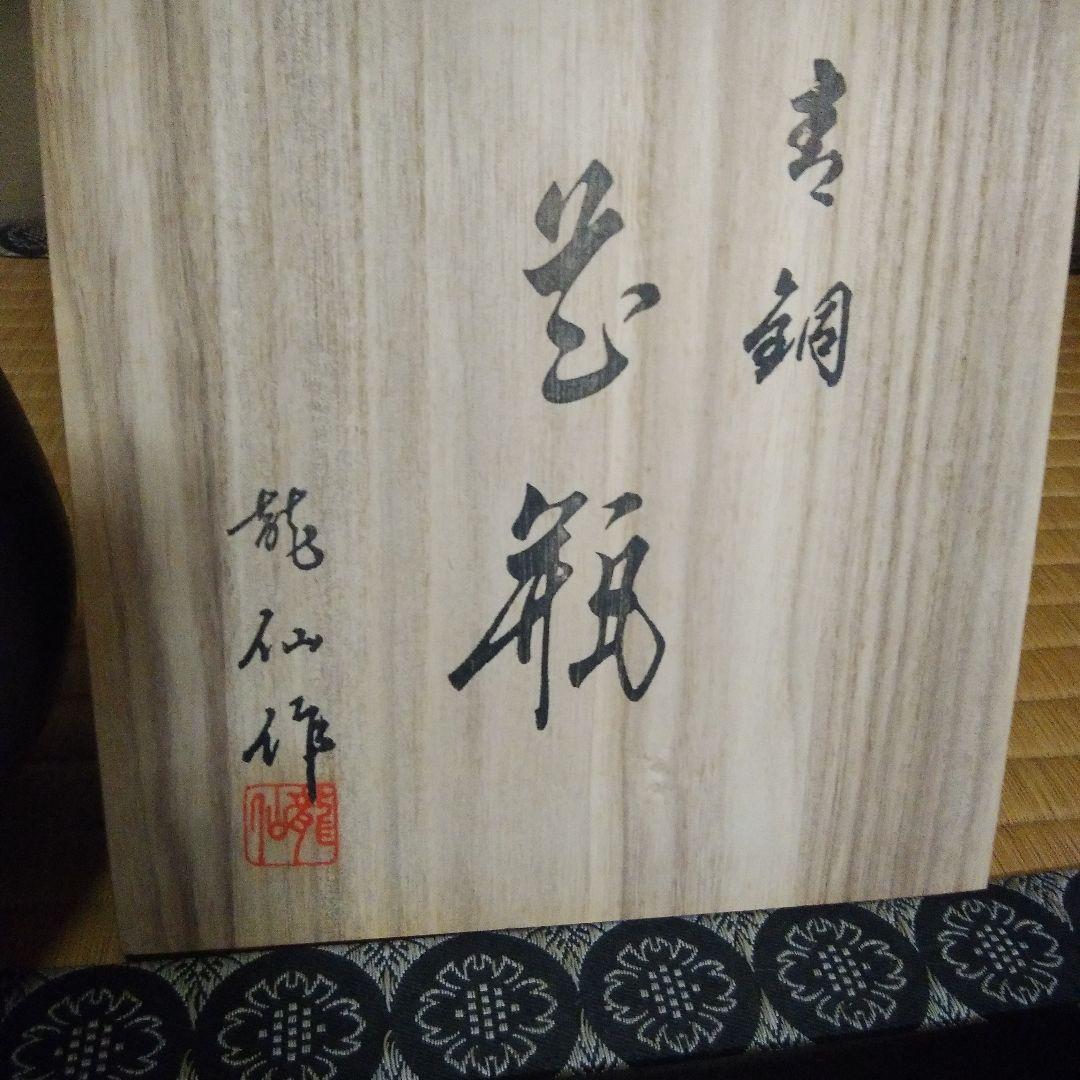 青銅
花瓶
龍仙作
龍仙